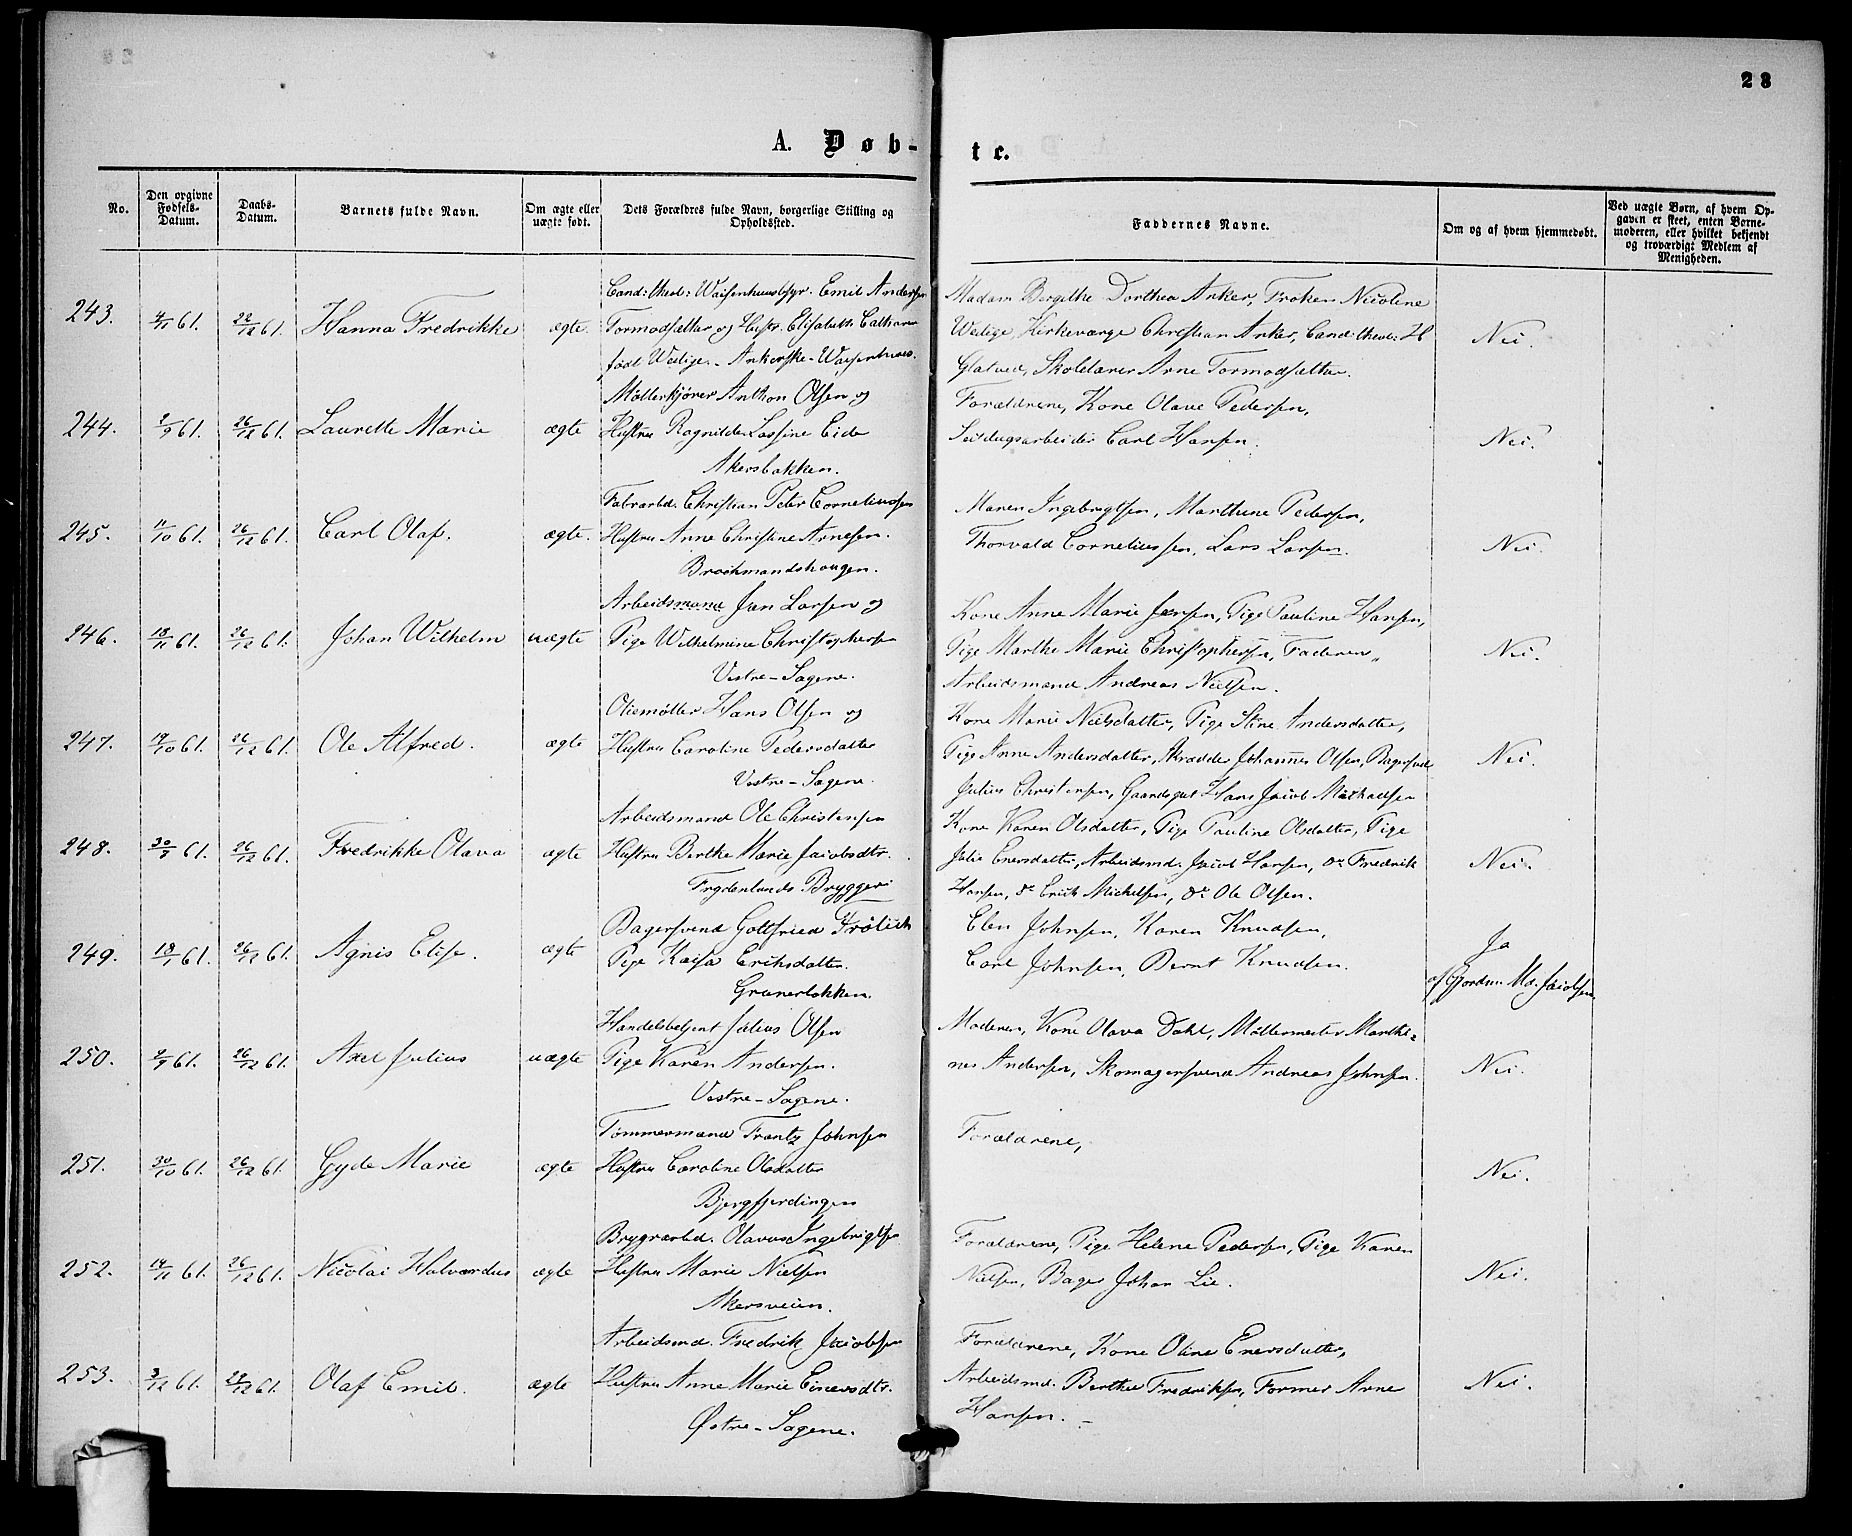 28
A. Døb-
te.
No.
Den opgivne Fødsels-Datum.
Daabs-Datum.
Barnets fulde Navn.
Om ægte eller uægte født.
Dets Forældres fulde Navn, borgerlige Stilling og Opholdssted.
Faddernes Navne.
Om og af hvem hjemmedøbt.
Ved uægte Børn, af hvem Op-
gaven er skeet, enten Børne-
moderen, eller hvilket bekjendt
og troværdigt Medlem af
Menigheden.
Cand: theol: Waisenhuusbestyr. Emil Andersen
Madam Bergithe Dorthea Anker, Frøken Nicoline
243. 4/11 61. 22/12 61. Hanna Fredrikke ægte Tormodsætter og Hustr. Elisabeth Cathrine
Weilige, Kirkeværge Christian Anker, Cand: theol: H
Nei.
født Weilige. - Ankerske-Waisenhuus.
Glatved, Skolelærer Arne Tormodsætter.
Møllerkjører Anthon Olsen og
Forældrene, Kone Olave Pedersen,
244. 2/9 61. 26/12 61. Laurette Marie ægte Hustru Ragnilde Lassine Eide
Seildugsarbeider Carl Hansen.
Nei.
Akersbakken.
Fabrarbd. Christian Peter Corneliussen
Maren Ingebregtsen, Marthine Pedersen,
245. 11/10 61. 26/12 61. Carl Olaf. ægte. Hustru Anne Christine Arnesen.
Thorvald Corneliussen, Lars Larsen.
Nei.
Brochmandshougen.
Arbeidsmand Jan Larsen og
Kone Anne Marie Jensen, Pige Pauline Hansen,
246. 18/11 61. 26/12 61. Johan Wilhelm uægte Pige Wilhelmine Christophersen
Pige Marthe Marie Christophersen, Faderen,
Nei.
Vestre-Sagene.
Arbeidsmand Andreas Nielsen.
Oliemøller Hans Olsen og
Kone Marie Nielsdatter, Pige Stine Andersdatter,
247. 19/10 61. 26/12 61. Ole Alfred. ægte Hustru Caroline Pedersdatter
Pige Anne Andersdatter, Skrædder Johannes Olsen, Bagersvend
Nei.
Vestre-Sagene.
Julius Christensen, Gaardsgut Hans Jacob Michaelsen
Arbeidsmand Ole Christensen
Kone Karen Olsdatter, Pige Pauline Olsdatter, Pige
248. 30/9 61. 26/12 61. Fredrikke Olava ægte Hustru Berthe Marie Jacobsdtr.
Julie Enersdatter, Arbeidsmd. Jacob Hansen, do Fredrik
Nei.
Frydenlunds Bryggeri
Hansen, do Erik Michelsen, do Ole Olsen.
Bagersvend Gottfried Frølich
Elen Johnsen, Karen Knudsen,
249. 18/1 61. 26/12 61. Agnis Elise. ægte Pige Kaisa Eriksdatter.
Carl Johnsen, Bernt Knudsen.
Ja
Grunerløkken.
af Gjordm. Md. Jacobsen
Handelsbetjent Julius Olsen
Moderen, Kone Olava Dahl, Møllermester Marthi-
250. 2/9 61. 26/12 61. Axel Julius uægte Pige Karen Andersen.
nes Andersen, Skomagersvend Andreas Johnsen.
Nei.
Vestre-Sagene.
Tømmermand Frantz Johnsen
Forældrene,
251. 30/10 61. 26/12 61. Gyda Marie ægte Hustru Caroline Olsdatter
Nei.
Bjergfjerdingen
Brygarbd. Olavus Ingebrigtsen
Forældrene, Pige Helene Pedersen, Pige Karen
252. 14/11 61. 26/12 61. Nicolai Halvardus ægte Hustru Marie Nielsen
Nielsen, Bager Johan Lie.
Nei.
Akersveien.
Arbeidsmd. Fredrik Jacobsen
Forældrene, Kone Oline Enersdatter,
253. 3/12 61. 29/12 61. Olaf Emil. ægte Hustru Anne Marie Einersdtr.
Arbeidsmd. Berthe Fredriksen, Former Arne
Nei.
Østre-Sagene.
Hansen.